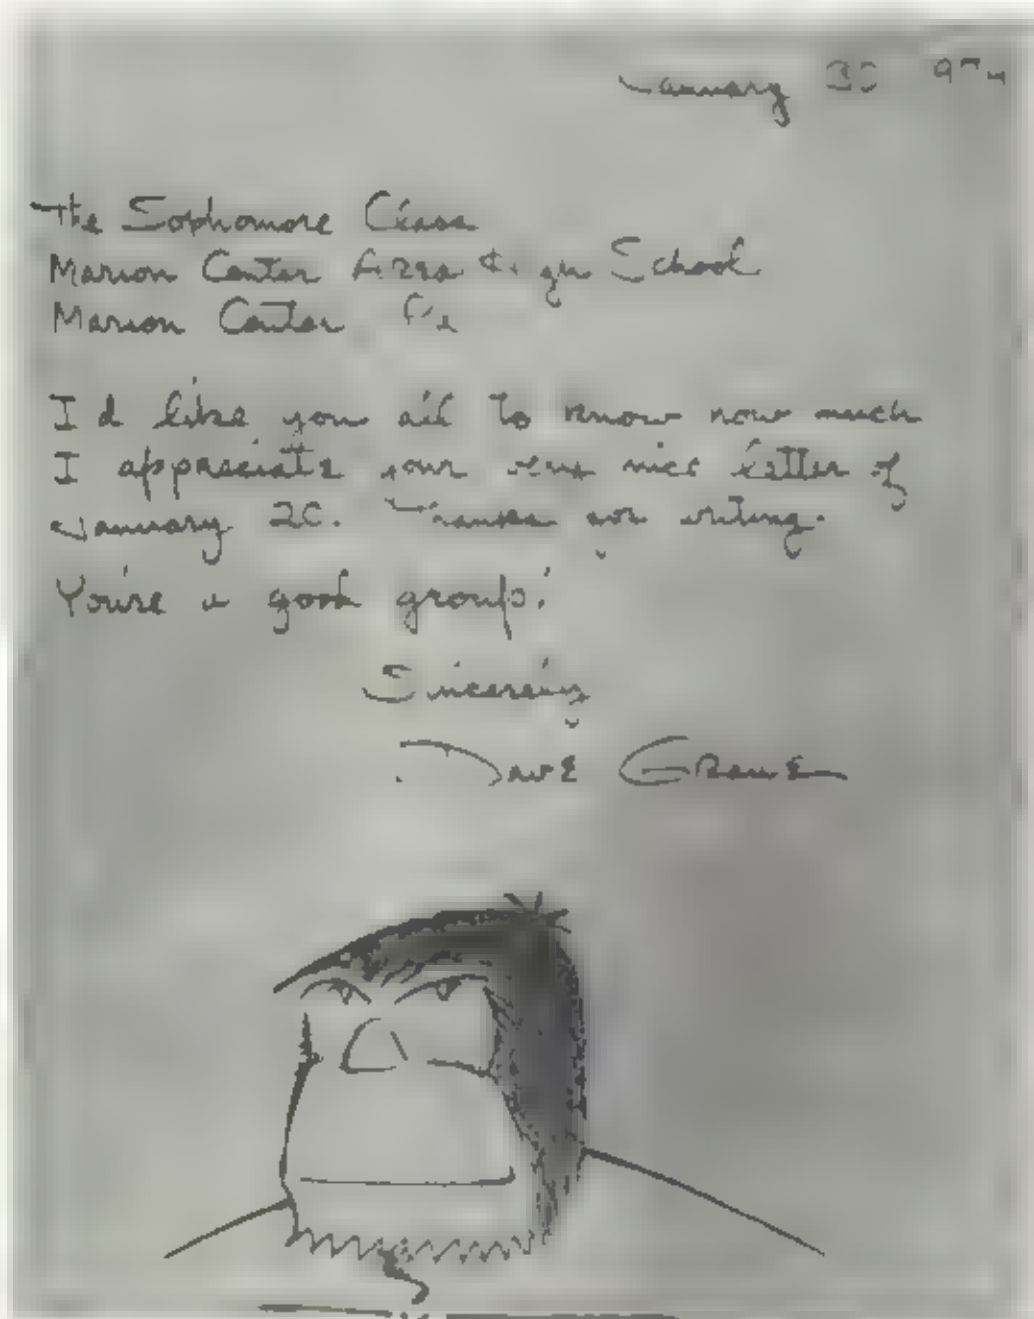 January 30
The Sophomore Class
Marion Center Area High School
Marion Center Pa
I'd like you all to know how much
I appreciate your very nice letter of
January 20. Thanks for writing.
You're a good group!
Sincerely
Dave